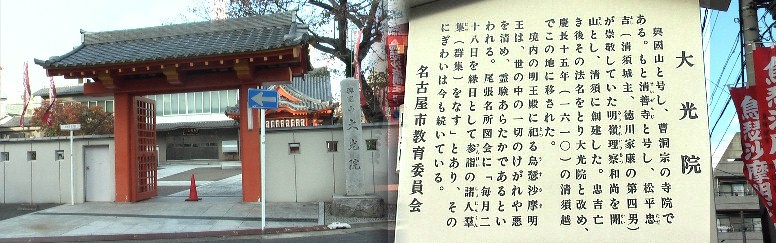 大光院
興國山と号し、曹洞宗の寺院で
ある。もと清善寺と号し、松平忠
吉(清須城主、徳川家康の第四男)
が崇敬していた明嶺理察和尚を開
山とし、清須に創建した。忠吉亡
き後その法名をとり大光院と改め、
慶長十五年(一六一〇)の清須越
でこの地に移された。
境内の明王殿に祀る烏芻沙摩明
王は、世の中の一切のけがれや悪
を清め、霊験あらたかであるとい
われる。尾張名所図会に「毎月二
十八日を縁日として参詣の諸人羣
集(群集)をなす」とあり、その
にぎわいは今も続いている。
名古屋市教育委員会
大光院
烏芻沙摩明